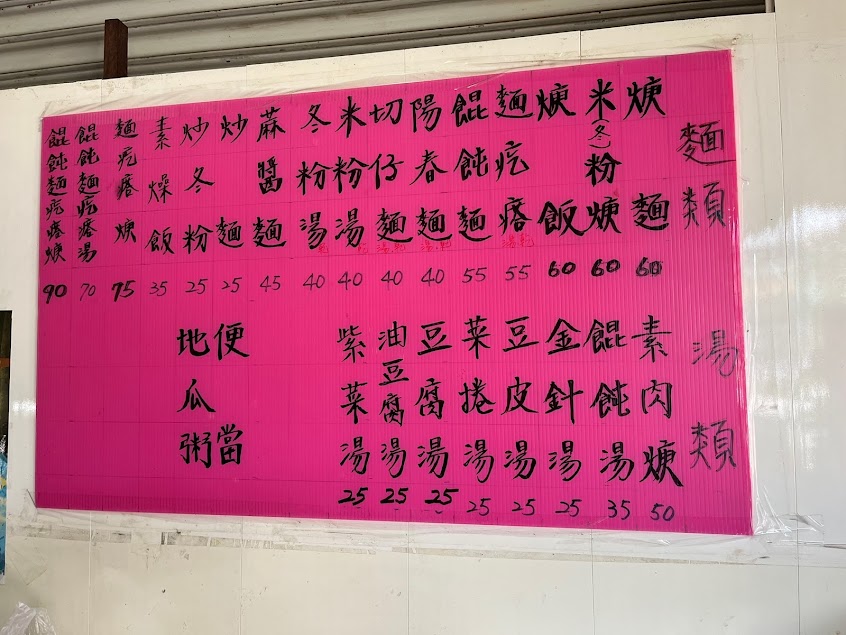 麵類
焿麵 60
米(冬)粉焿 60
焿飯 60
麵疙瘩 55
餛飩麵 55
陽春麵 40
切仔麵 40
米粉湯 40
冬粉湯 40
蔴醬麵 45
炒麵 25
炒冬粉 25
素燥飯 35
麵疙瘩焿 75
餛飩麵疙瘩湯 70
餛飩麵疙瘩焿 90
湯類
素肉焿 50
餛飩湯 35
金針湯 25
豆皮湯 25
菜捲湯 25
豆腐湯 25
油豆腐湯 25
紫菜湯 25
便當
地瓜粥